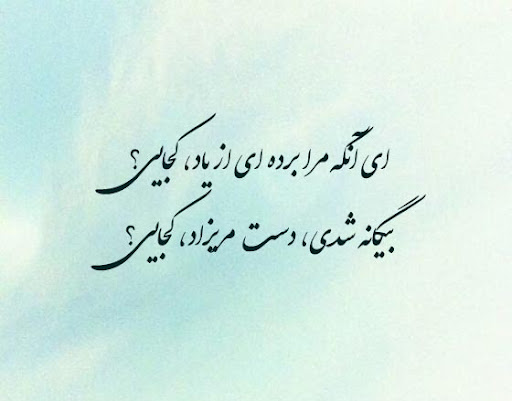 ای آنکه مرا برده ای از یاد، کجایی؟
بیگانه شدی، دست مریزاد، کجایی؟